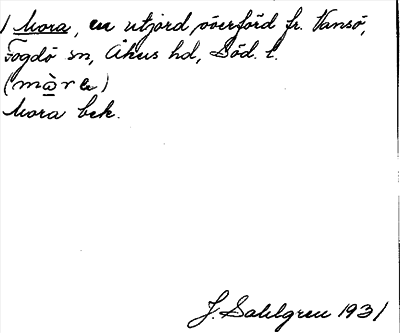 Mora, en utjord, överförd fr. Vansö,
Fogdö sn, Åkers hd, Söd. l.
Mora bek.
J. Sahlgren 1931